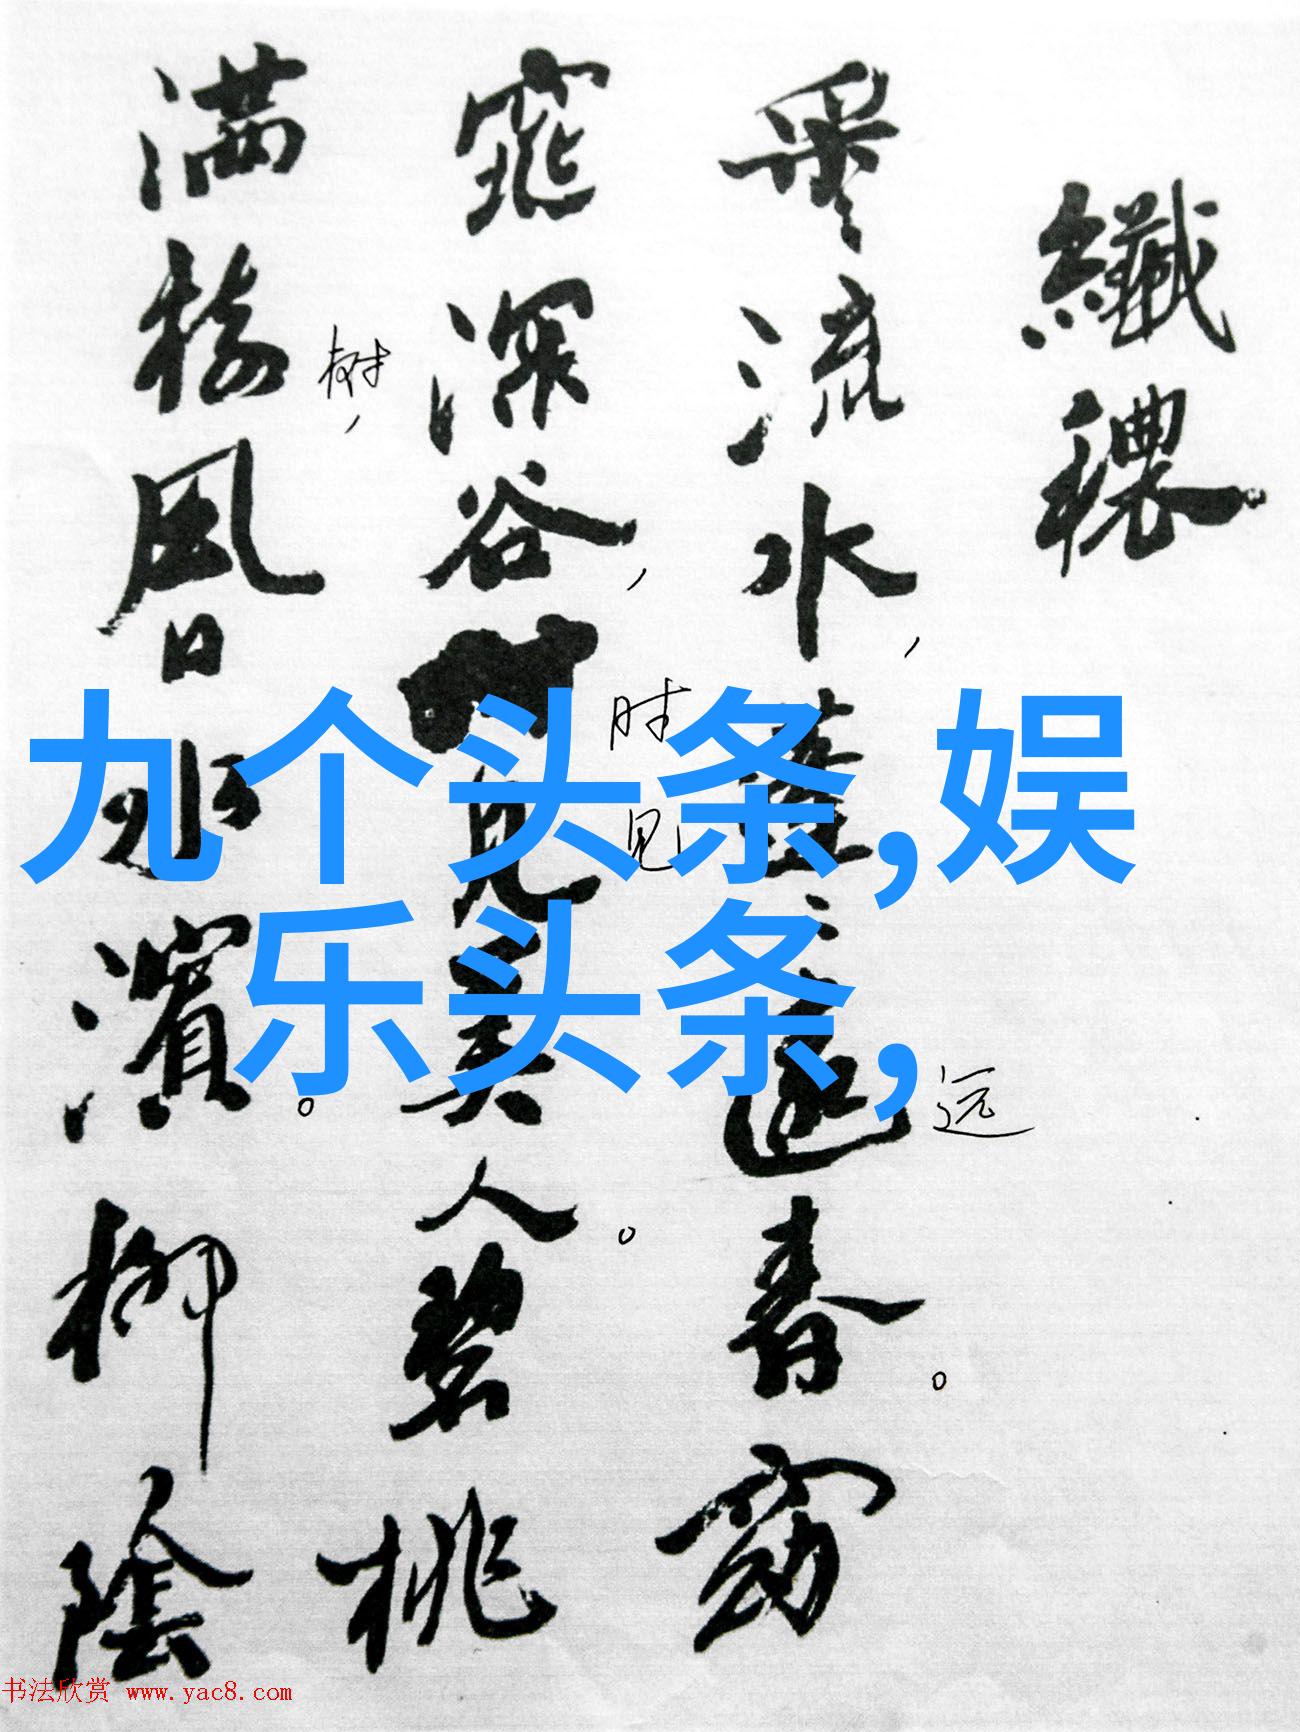 纖穠
采流水，蓬遠春。窈
窕深谷，見美人。碧桃
满樹，風日水濱。柳陰
树，
时
见
远
九个头条,娱
乐头条,
书法欣赏 www.yac8.com